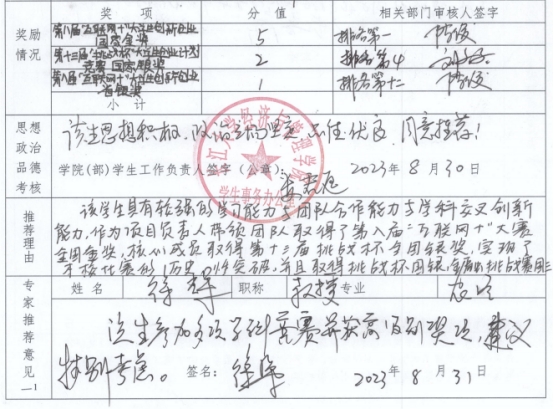 奖励情况
奖 项 分 值 相关部门审核人签字
第八届"互联网+"大学生创新创业
国家金奖 5 排名第一
第十三届"挑战杯"大学生创业计划
竞赛 国家银奖 2 排名第4
第八届"互联网+"大学生创新创业
省银奖 1 排名第十二
小 计
思想政治品德考核
该生思想积极、政治立场坚定、品德优良、同意推荐!
学院(部)学生工作负责人签字(公章): 2023年 8 月 30 日
经济管理学院
学生事务办公室
推荐理由
该学生具有较强的学习能力与团队合作能力与学科交叉创新
能力,作为项目负责人带领团队取得了第八届"互联网+"大赛
全国金奖,核心成员取得第十三届挑战杯全国银奖,实现了
历史 突破,并且取得挑战杯国银
专家推荐意见一1
姓 名 徐 职称 教授 专业
该生参加多项学科竞赛并获高级别奖项,建议
特别考虑。 签名: 徐 2023年 8 月 31 日